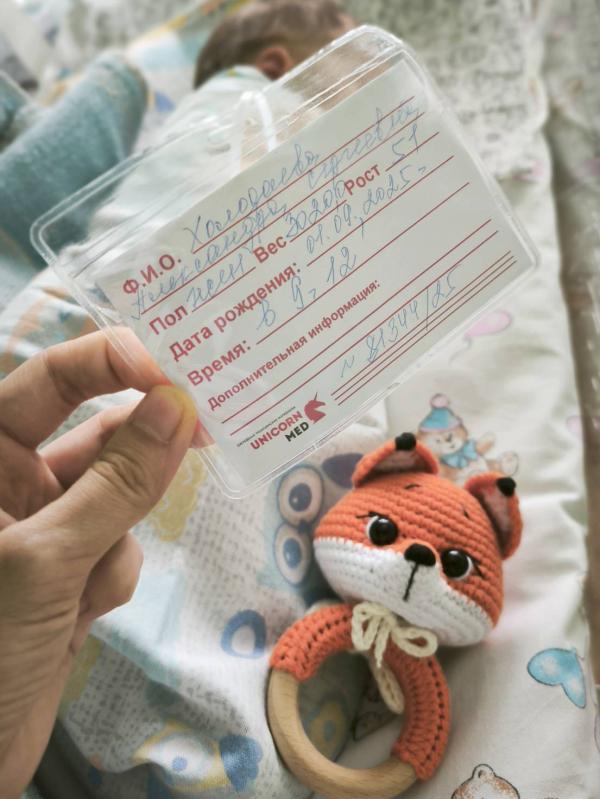 Ф.И.О. Холодаева
Александра Сергеевна
Пол жен Вес 3020 Рост 51
Дата рождения: 01.09.2025г
Время: в 9г. 12
Дополнительная информация:
N 81344/25
UNICORN
MED